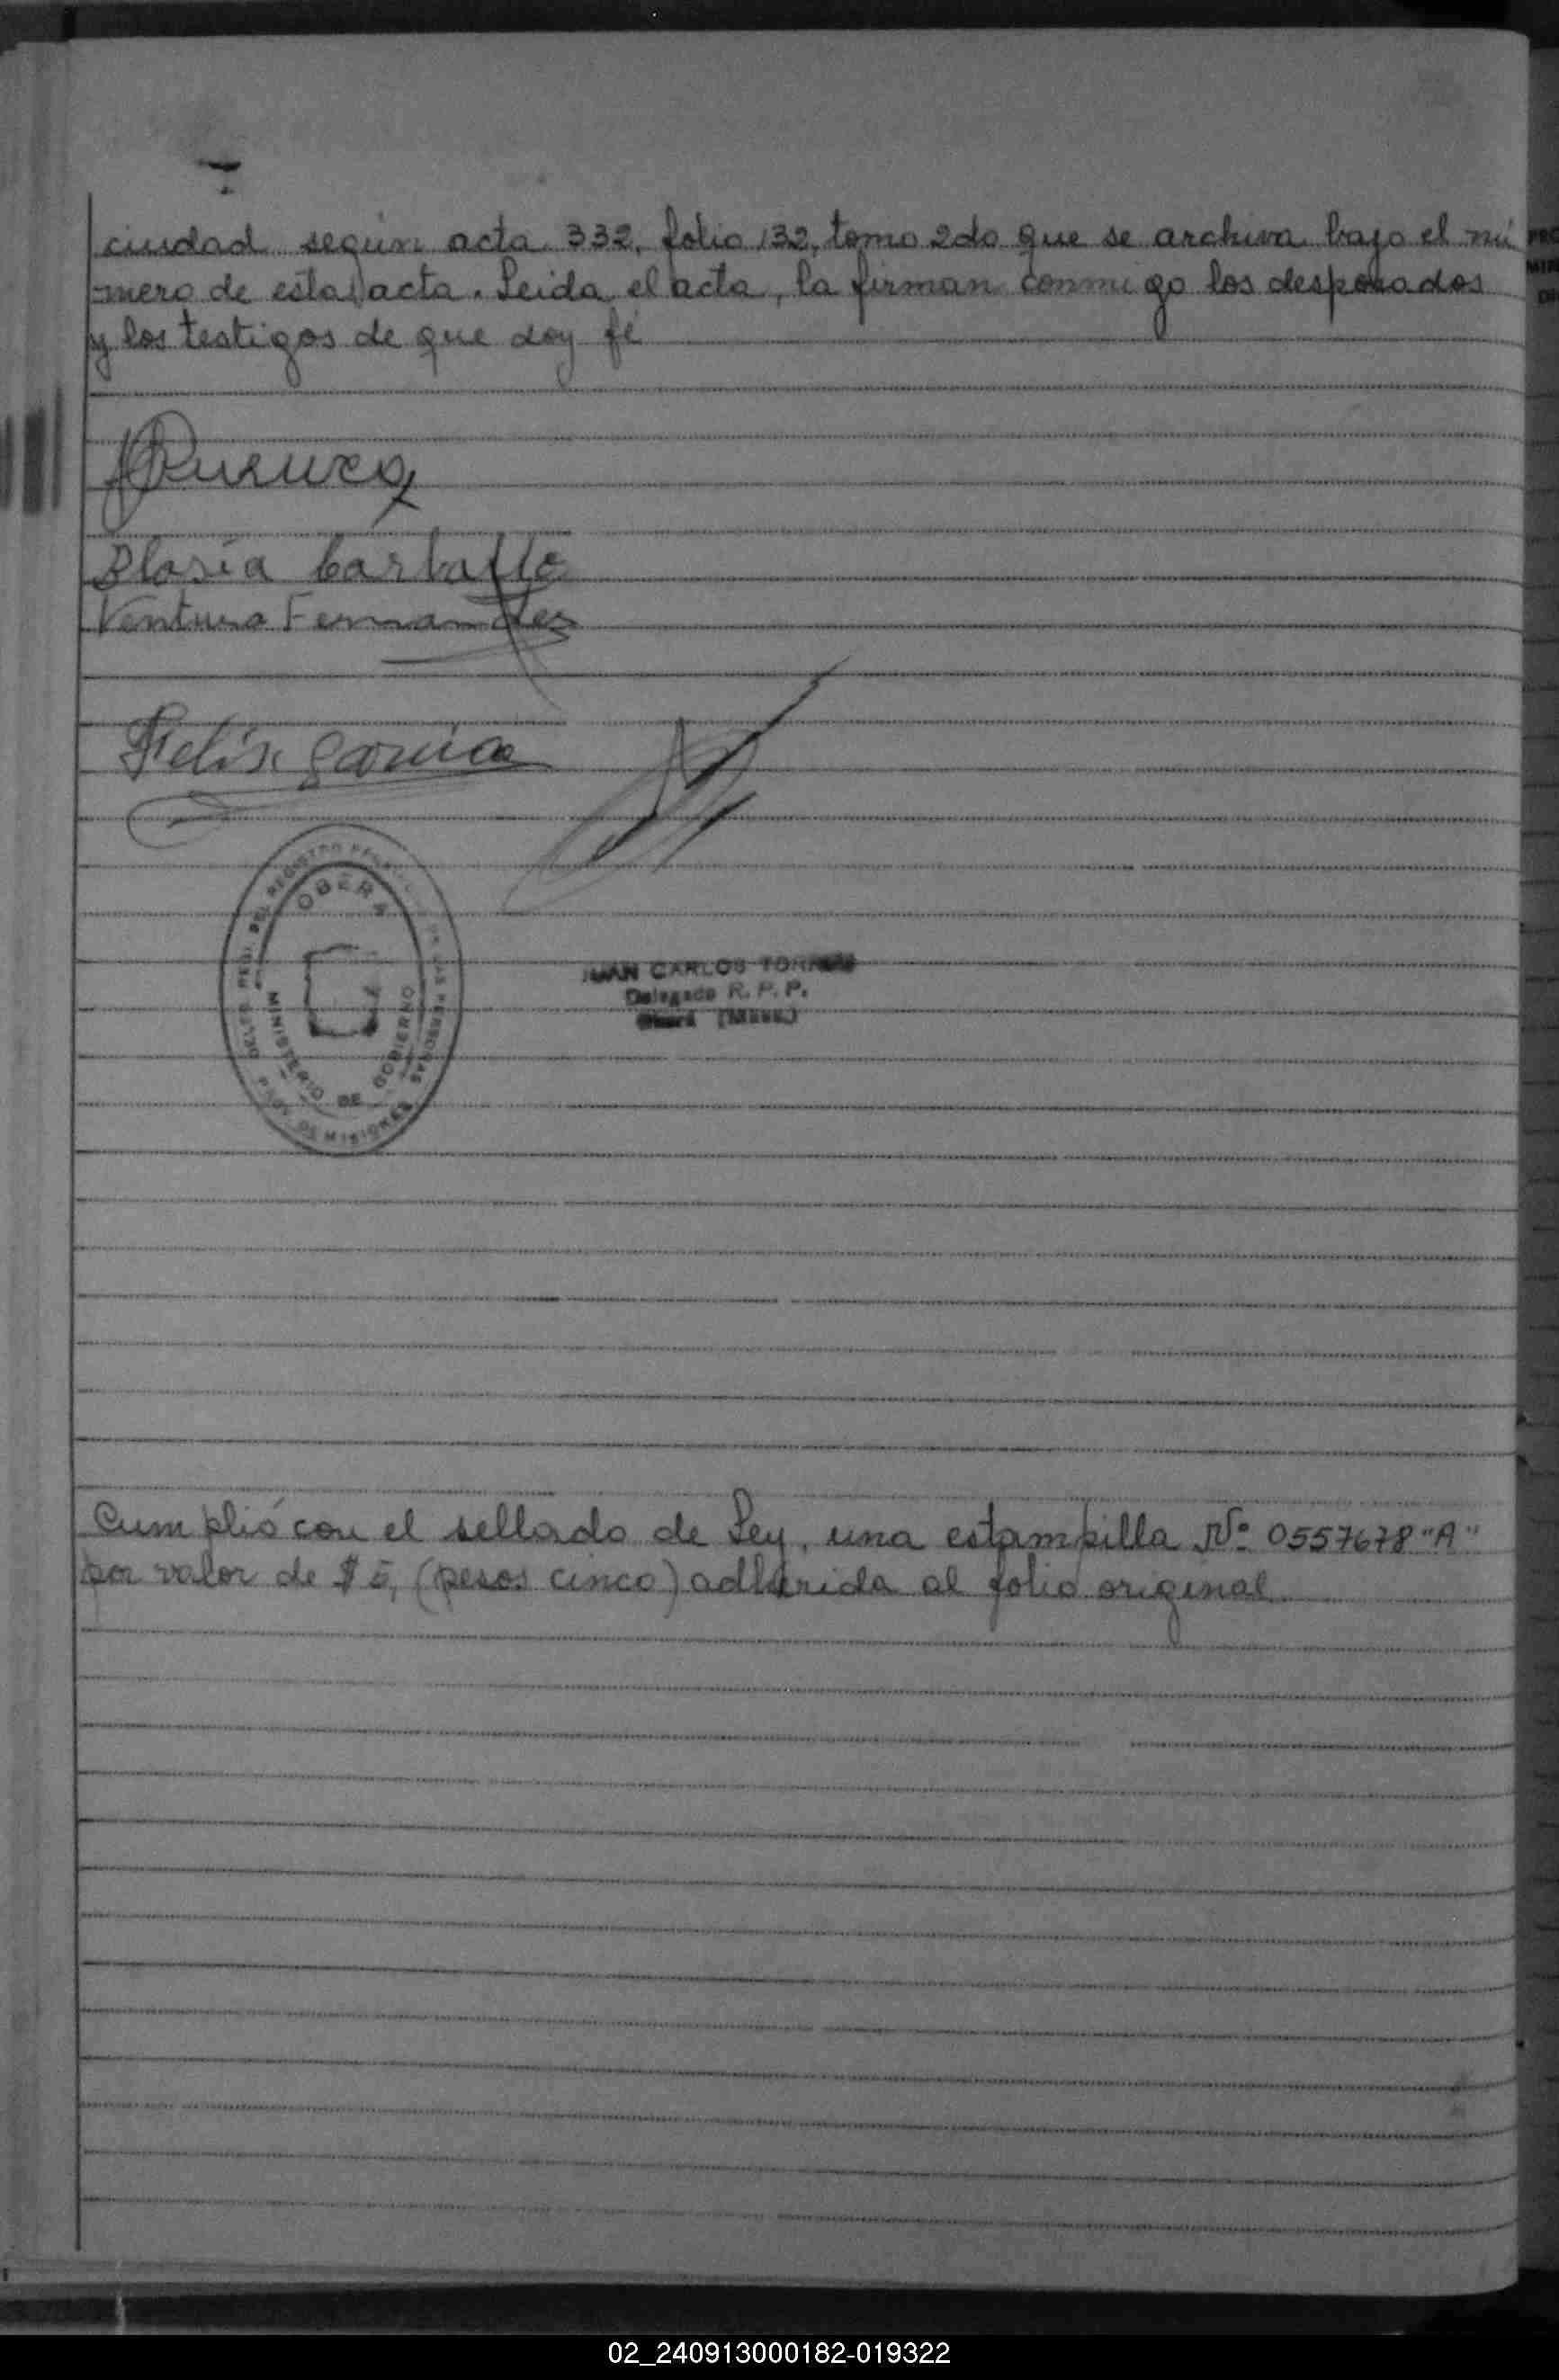 ciudad según acta 332, folio 132, tomo 2do que se archiva bajo el nú
mero de esta acta. Leida el acta, la firman conmigo los desposados
y los testigos de que doy fé
Blasia Carballo
Ventura Fernandez
Felix Garcia
OBERA
MINISTERIO DE GOBIERNO
DEL REGISTRO
LAS PERSONAS
DE MISIONES
JUAN CARLOS TORRES
Delegado R. P. P.
Cumplió con el sellado de Ley, una estampilla Nº 0557678 "A"
por valor de $ 5, (pesos cinco) adherida al folio original
02_240913000182-019322